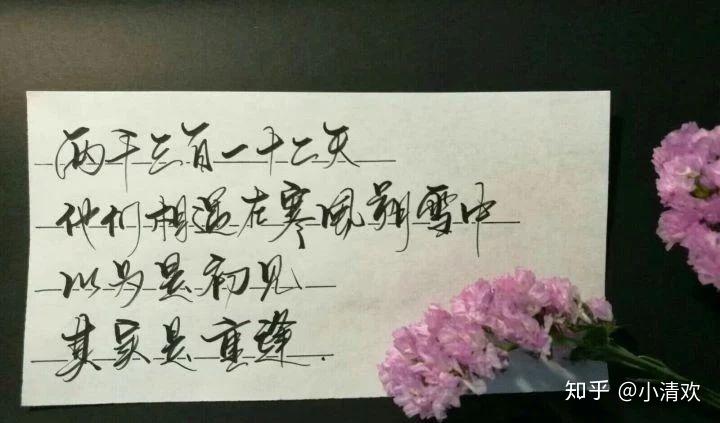 两千三百一十二天
他们相遇在寒风朔雪中
以为是初见
其实是重逢.
知乎 @小清欢